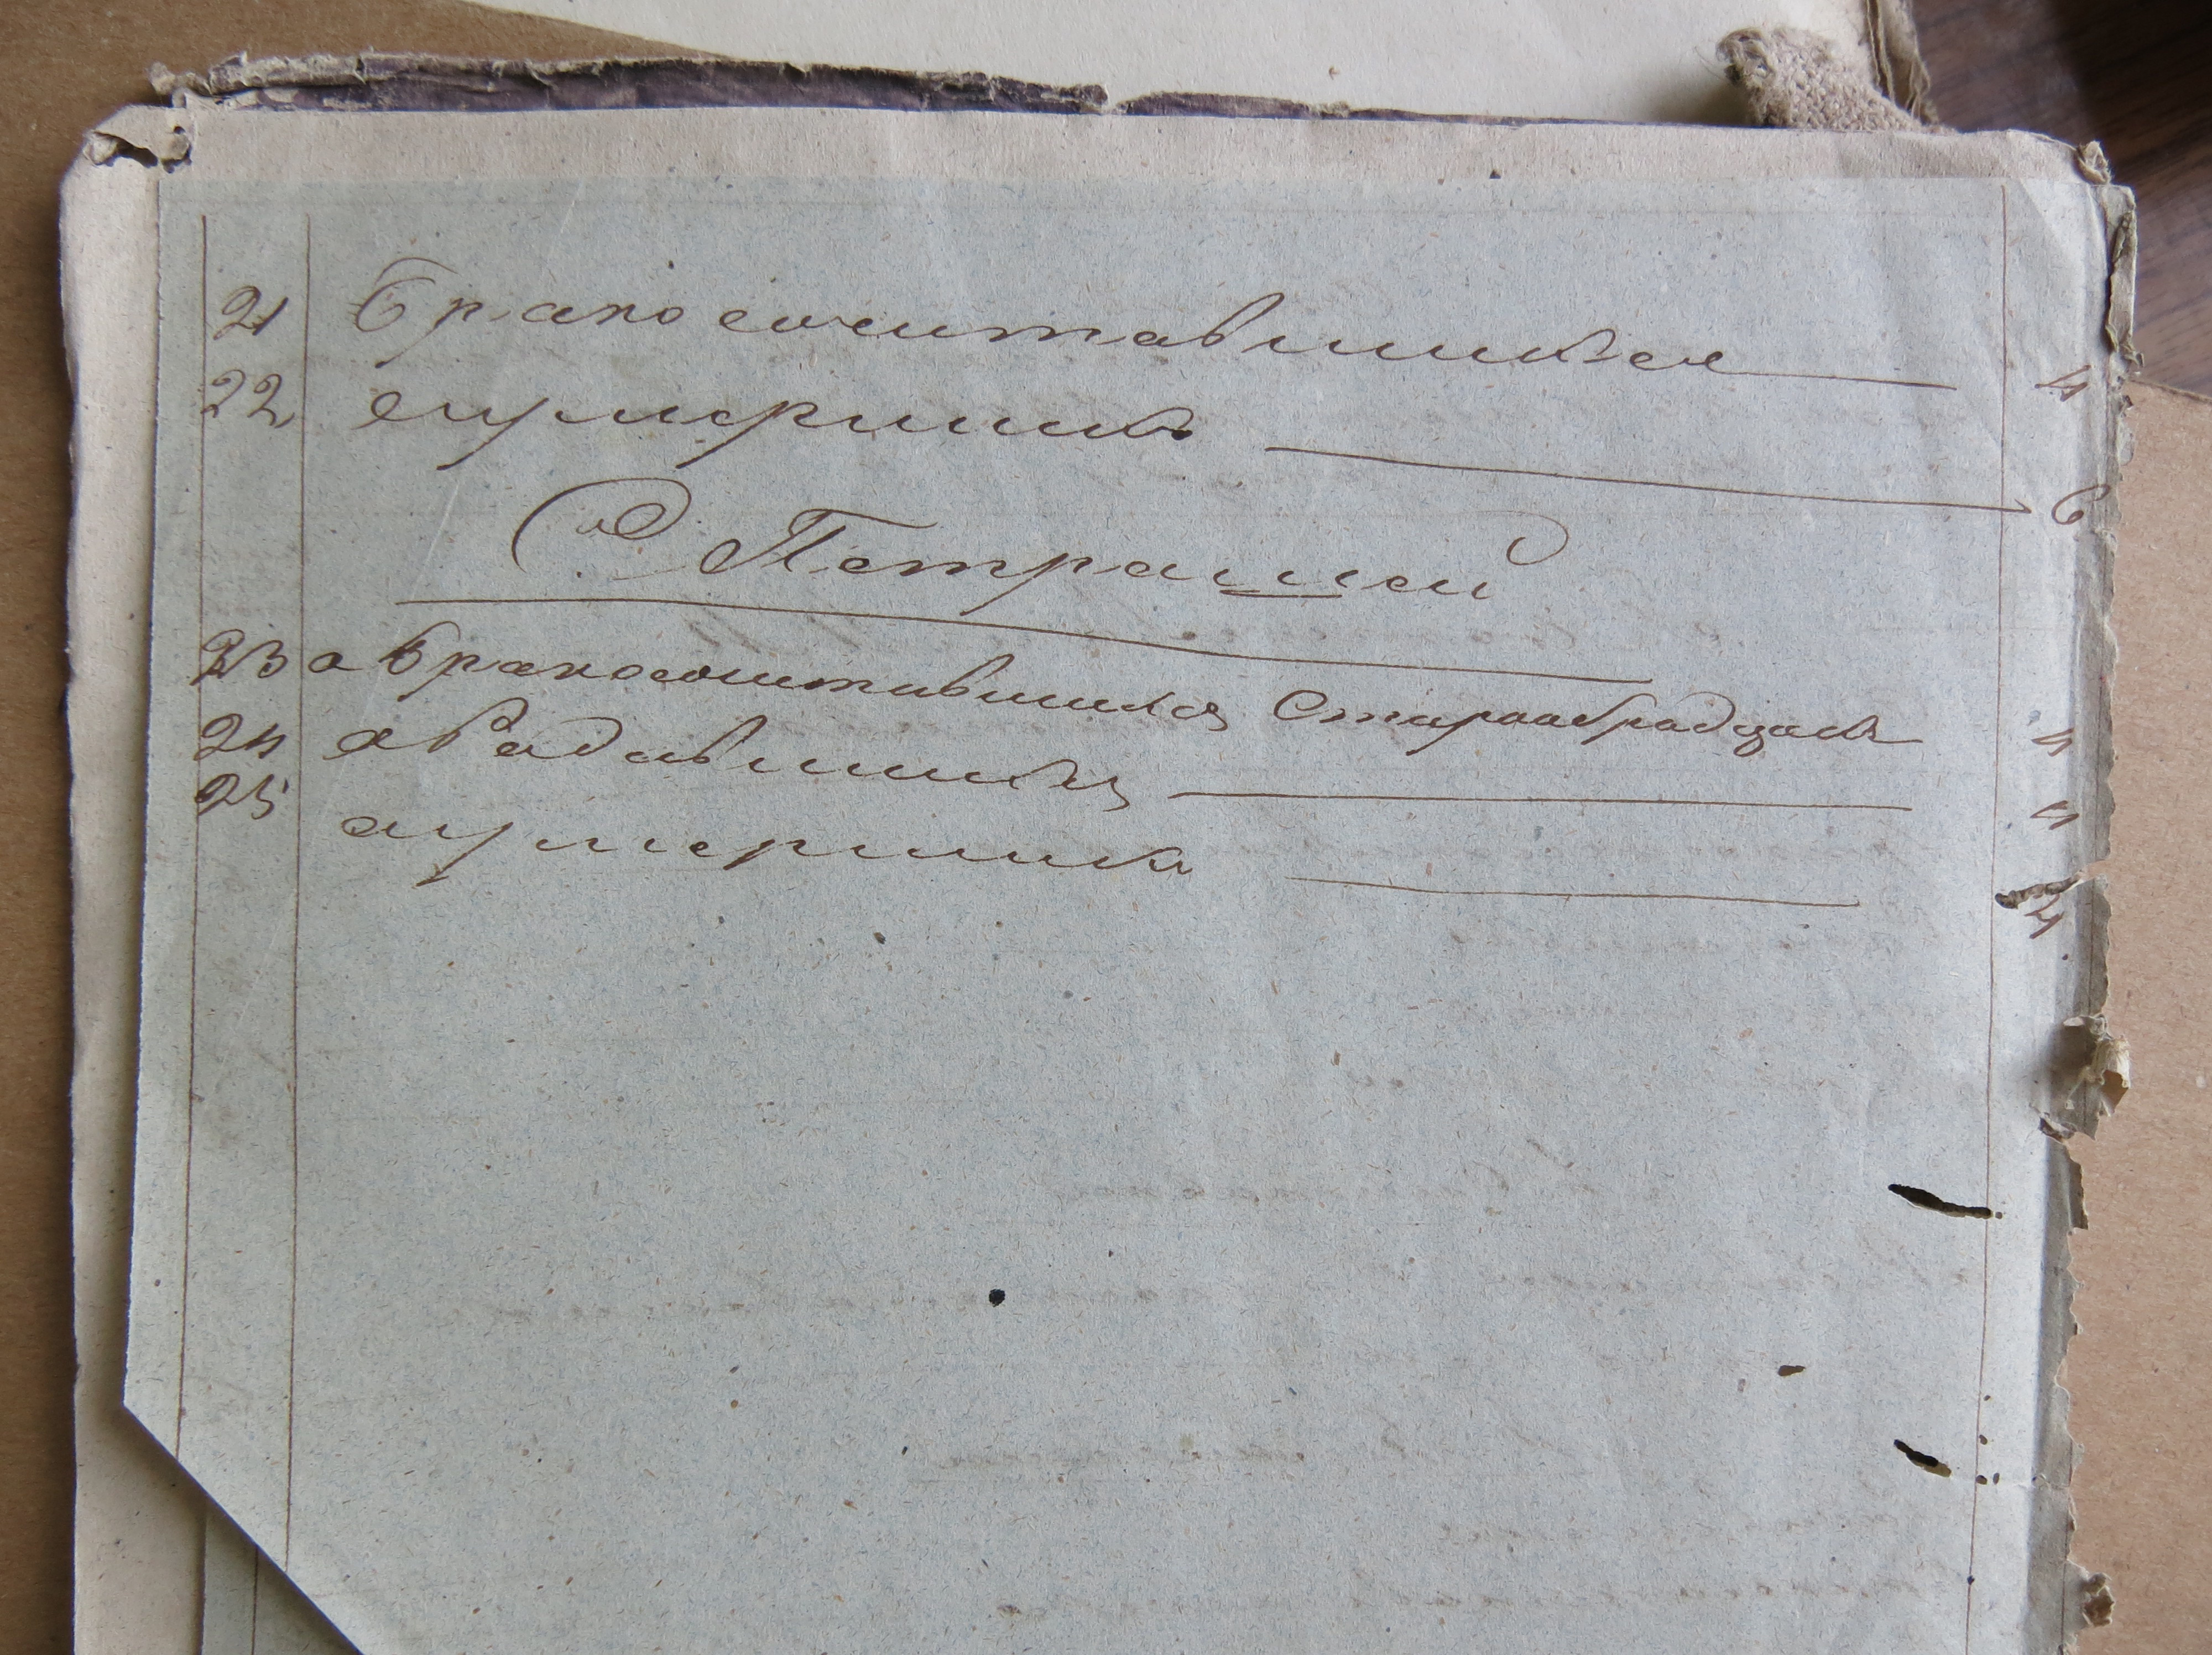 21 бракосочитавшихся 4
22 оумершихъ 6
Петрашей
23 о бракосочитавшихся Старообрядцахъ 4
24 о Радившихся 4
25 оумерших 4